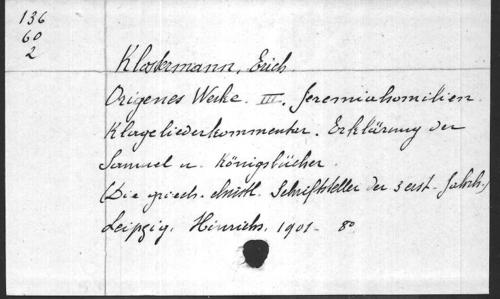 136
60
2
Klostermann, Erich.
Origenes Werke. III. Jeremiahomilien.
Klageliederkommentar. Erklärung der
Samuel u. Königsbücher.
(Die griech. christl. Schriftsteller der 3 erst. Jahrh.)
Leipzig, Hinrichs, 1901. 8o